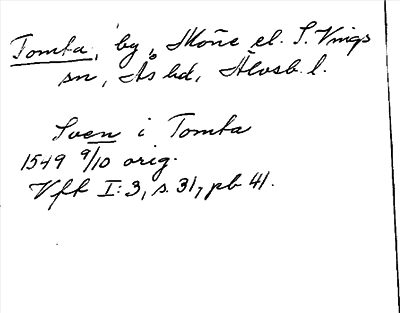 Tomta, by, Sköne el. S. Vings
sn, Ås hd, Älvsb. l.
Sven i Tomta
1549 9/10 orig.
Vff I:3, s. 31, pb 41.